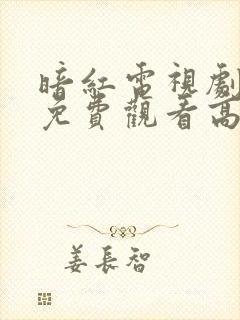 暗紅電視劇
免費觀看高
姜長智